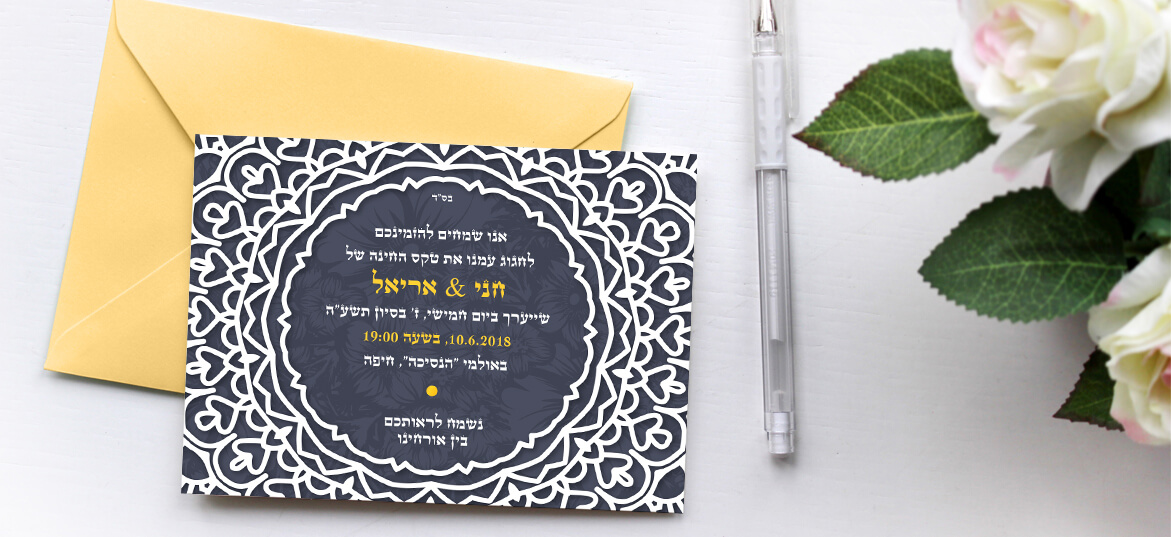 בס"ד
אנו שמחים להזמינכם
לחגוג עמנו את טקס החינה של
חני & אריאל
שייערך ביום חמישי, ז' בסיון תשע"ה
10.6.2018, בשעה 19:00
באולמי "הנסיכה", חיפה
נשמח לראותכם
בין אורחינו